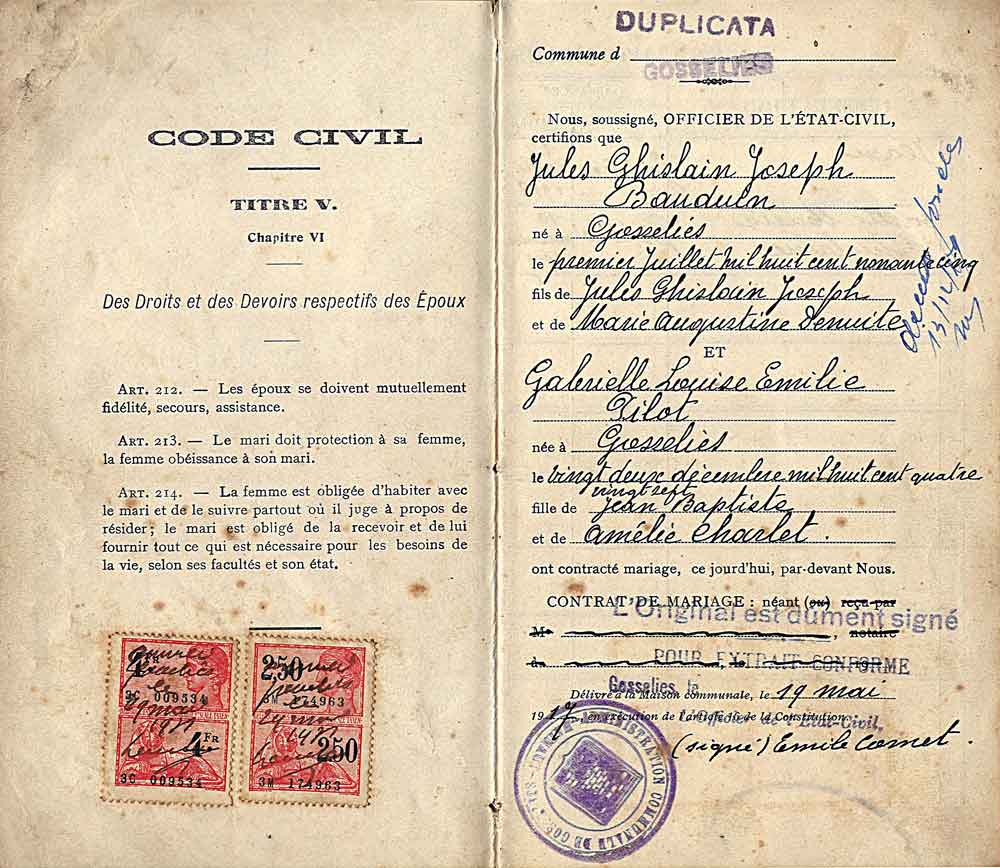 CODE CIVIL
TITRE V.
Chapitre VI
Des Droits et des Devoirs respectifs des Époux
ART. 212. — Les époux se doivent mutuellement
fidélité, secours, assistance.
ART. 213. — Le mari doit protection à sa femme,
la femme obéissance à son mari.
ART. 214. — La femme est obligée d'habiter avec
le mari et de le suivre partout où il juge à propos de
résider; le mari est obligé de la recevoir et de lui
fournir tout ce qui est nécessaire pour les besoins de
la vie, selon ses facultés et son état.
4 FR
3C 009534
4 FR
3C 009534
2,50
3M 174963
250
3M 174963
DUPLICATA
Commune d
GOSSELIES
Nous, soussigné, OFFICIER DE L'ÉTAT-CIVIL,
certifions que
Jules Ghislain Joseph
Bauduin
né à Gosselies
le premier Juillet mil huit cent nonante cinq
fils de Jules Ghislain Joseph
et de Marie Augustine Denuite
ET
Gabrielle Louise Emilie
Pilot
née à Gosselies
le vingt deux décembre mil huit cent quatre
vingt sept
fille de Jean Baptiste
et de Amélie Charlet.
ont contracté mariage, ce jourd'hui, par-devant Nous.
CONTRAT DE MARIAGE : néant (ou) reçu par
L'Original est dûment signé
M notaire
POUR EXTRAIT CONFORME
à, le 19
Gosselies, le
Délivré à la Maison communale, le 19 mai
19 17, en exécution de l'article 16 de la Constitution.
l'Officier de l'État-Civil,
(signé) Emile Cornet.
ADMINISTRATION COMMUNALE DE GOSSELIES - HAINAUT
13/12/